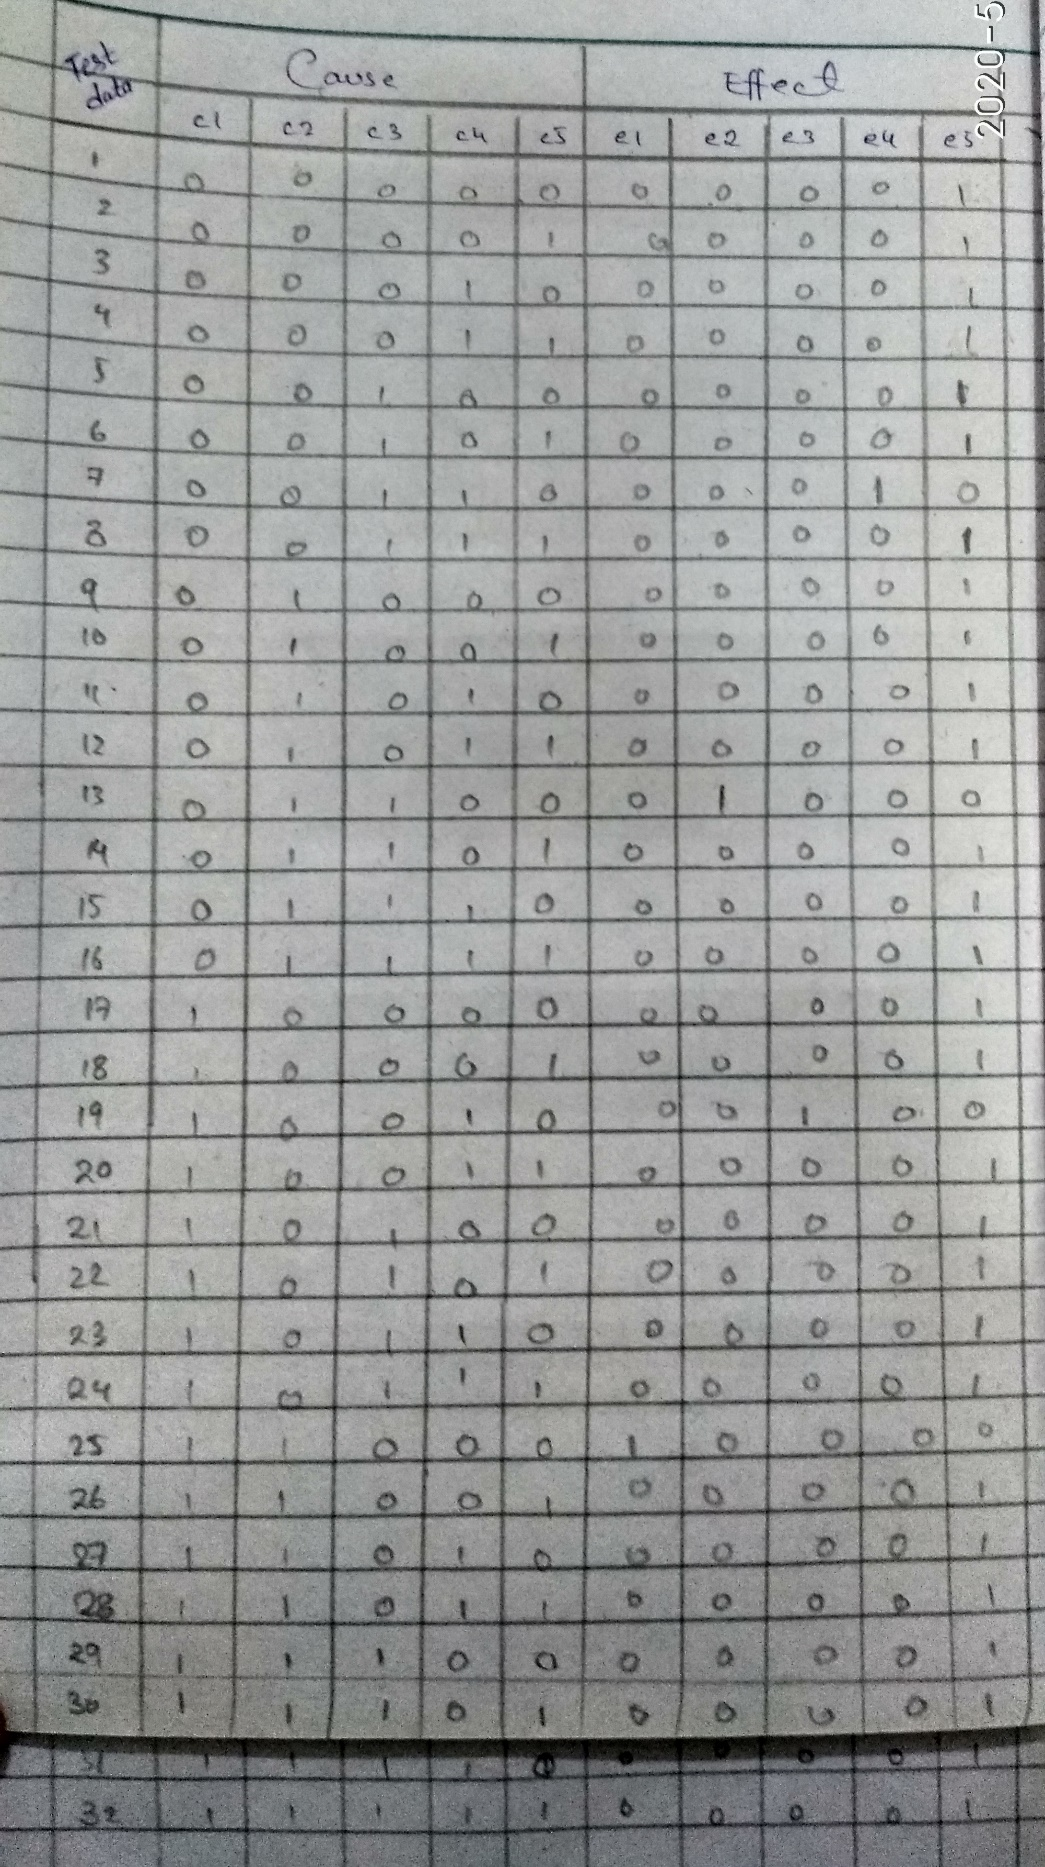 Test data Cause Effect
c1 c2 c3 c4 c5 e1 e2 e3 e4 e5
1 0 0 0 0 0 0 0 0 0 1
2 0 0 0 0 1 0 0 0 0 1
3 0 0 0 1 0 0 0 0 0 1
4 0 0 0 1 1 0 0 0 0 1
5 0 0 1 0 0 0 0 0 0 1
6 0 0 1 0 1 0 0 0 0 1
7 0 0 1 1 0 0 0 0 1 0
8 0 0 1 1 1 0 0 0 0 1
9 0 1 0 0 0 0 0 0 0 1
10 0 1 0 0 1 0 0 0 0 1
11 0 1 0 1 0 0 0 0 0 1
12 0 1 0 1 1 0 0 0 0 1
13 0 1 1 0 0 0 1 0 0 0
14 0 1 1 0 1 0 0 0 0 1
15 0 1 1 1 0 0 0 0 0 1
16 0 1 1 1 1 0 0 0 0 1
17 1 0 0 0 0 0 0 0 0 1
18 1 0 0 0 1 0 0 0 0 1
19 1 0 0 1 0 0 0 1 0 0
20 1 0 0 1 1 0 0 0 0 1
21 1 0 1 0 0 0 0 0 0 1
22 1 0 1 0 1 0 0 0 0 1
23 1 0 1 1 0 0 0 0 0 1
24 1 0 1 1 1 0 0 0 0 1
25 1 1 0 0 0 1 0 0 0 0
26 1 1 0 0 1 0 0 0 0 1
27 1 1 0 1 0 0 0 0 0 1
28 1 1 0 1 1 0 0 0 0 1
29 1 1 1 0 0 0 0 0 0 1
30 1 1 1 0 1 0 0 0 0 1
31 1 1 1 1 0 0 0 0 0 1
32 1 1 1 1 1 0 0 0 0 1
2020-5